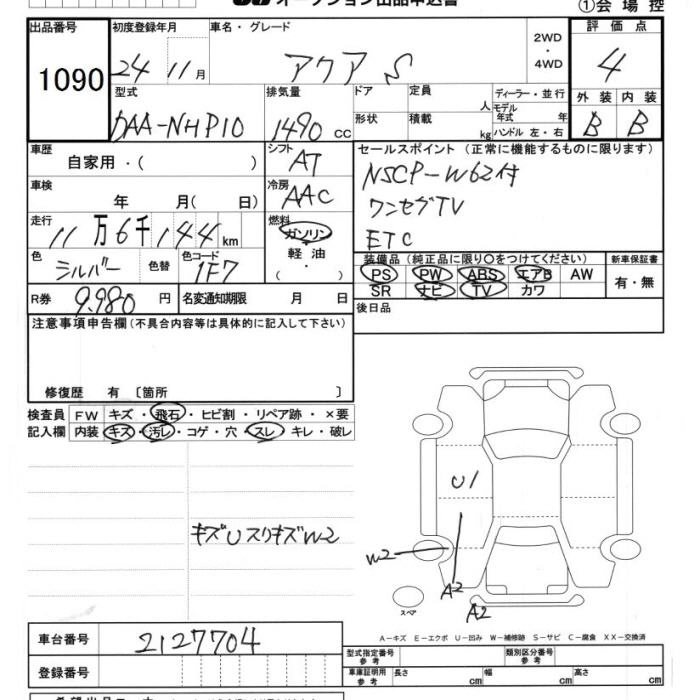 オークション出品申込書
①会場控
出品番号 初度登録年月 車名・グレード 評価点
1090 24 11月 アクア S 2WD・4WD 4
型式 排気量 ドア 定員 人 ディーラー・並行 外装 内装
DAA-NHP10 1490 cc 形状 積載 kg モデル年式 年 ハンドル 左・右 B B
車歴 自家用・( ) シフト AT セールスポイント (正常に機能するものに限ります)
車検 年 月( 日) 冷房 AAC NSCP-W62付
ワンセグTV
走行 11万6千144km 燃料 ガソリン 軽油・( ) ETC
色 シルバー 色替 色コード 1F7 装備品(純正品に限り○をつけてください) 新車保証書
PS PW ABS エアB AW 有・無
R券 9.980円 名変通知期限 月 日 SR ナビ TV カワ
後日品
注意事項申告欄(不具合内容等は具体的に記入して下さい)
修復歴 有 〔箇所 〕
検査員 FW キズ・飛石・ヒビ割・リペア跡・×要
記入欄 内装 キズ・汚レ・コゲ・穴・スレ・キレ・破レ
U1
キズUスリキズW2
W2
A2
A2
スペア
A-キズ E-エクボ U-凹み W-補修跡 S-サビ C-腐食 XX-交換済
車台番号 2127704 型式指定番号 参考 類別区分番号 参考
登録番号 車庫証明用 参考 長さ cm 幅 cm 高さ cm